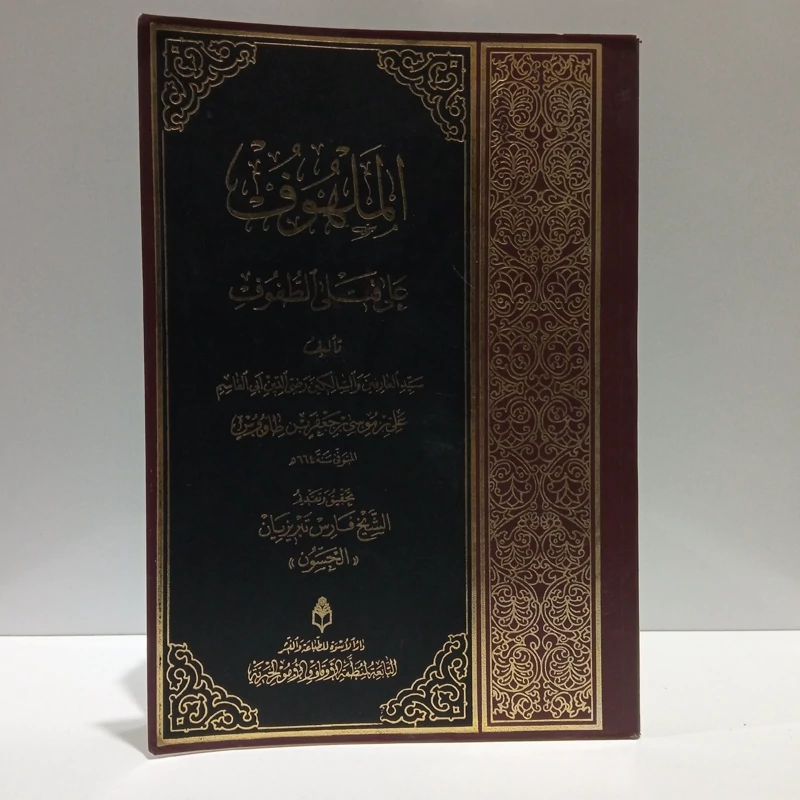 المَلهُوف
عَلى قَتلَى الطُّفُوف
تأليف
سيّد العارفين والسالكين رضي الدين أبي القاسم
علي بن موسى بن جعفر بن طاووس
المتوفى سنة ٦٦٤ هـ
تحقيق وتقديم
الشَّيخ فَارس تبريزيان
«الحسّون»
دار الأسوة للطباعة والنشر
التابعة لمنظمة الأوقاف والأمور الخيرية